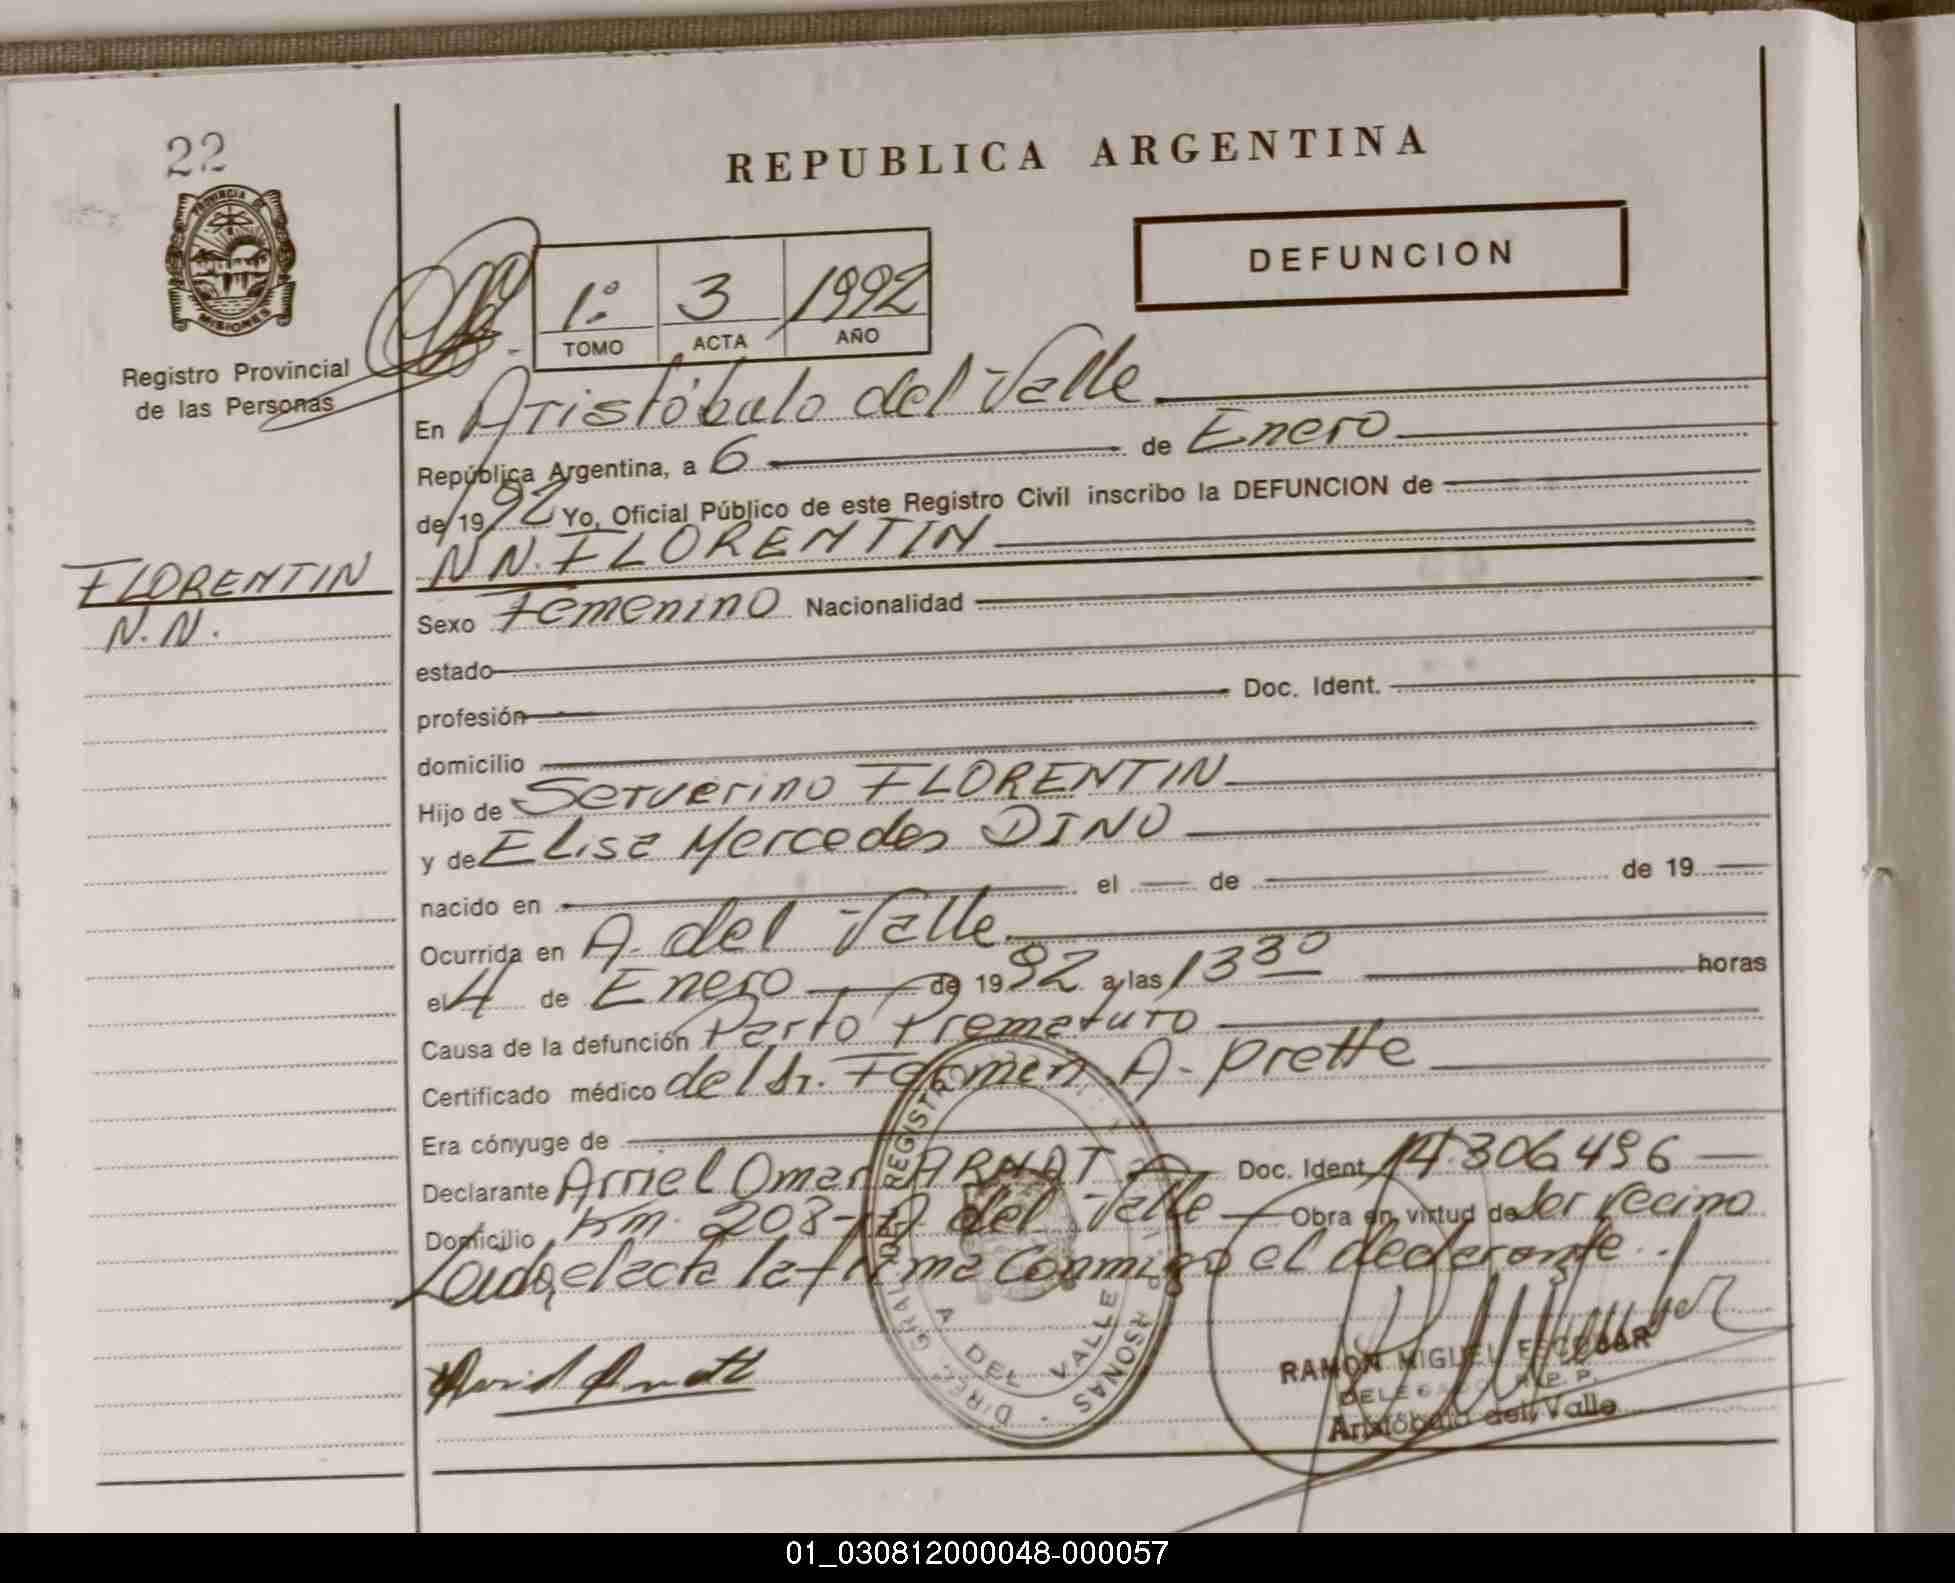 22
REPUBLICA ARGENTINA
PROVINCIA DE
MISIONES
DEFUNCION
1º 3 1992
TOMO ACTA AÑO
Registro Provincial
de las Personas
En Aristóbulo del Valle
República Argentina, a 6 de Enero
de 1992 Yo, Oficial Público de este Registro Civil inscribo la DEFUNCION de
N N. FLORENTIN
FLORENTIN
N. N.
Sexo Femenino Nacionalidad
estado
profesión Doc. Ident.
domicilio
Hijo de Serverino FLORENTIN
y de Elisa Mercedes DINO
nacido en el de de 19
Ocurrida en A. del Valle
el 4 de Enero de 1992 a las 13 30 horas
Causa de la defunción Parto Prematuro
Certificado médico del Dr. A. Prette
Era cónyuge de
Declarante Arriel Omar ARNDT Doc. Ident. 14.306.496
Domicilio Km. 208 - A. del Valle Obra en virtud de ser vecino
Leida el acta la firma conmigo el declarante.
REGISTRO
A. DEL VALLE
RAMON MIGUEL ESCOBAR
DELEGADO R. P. P.
Aristóbulo del Valle
01_030812000048-000057